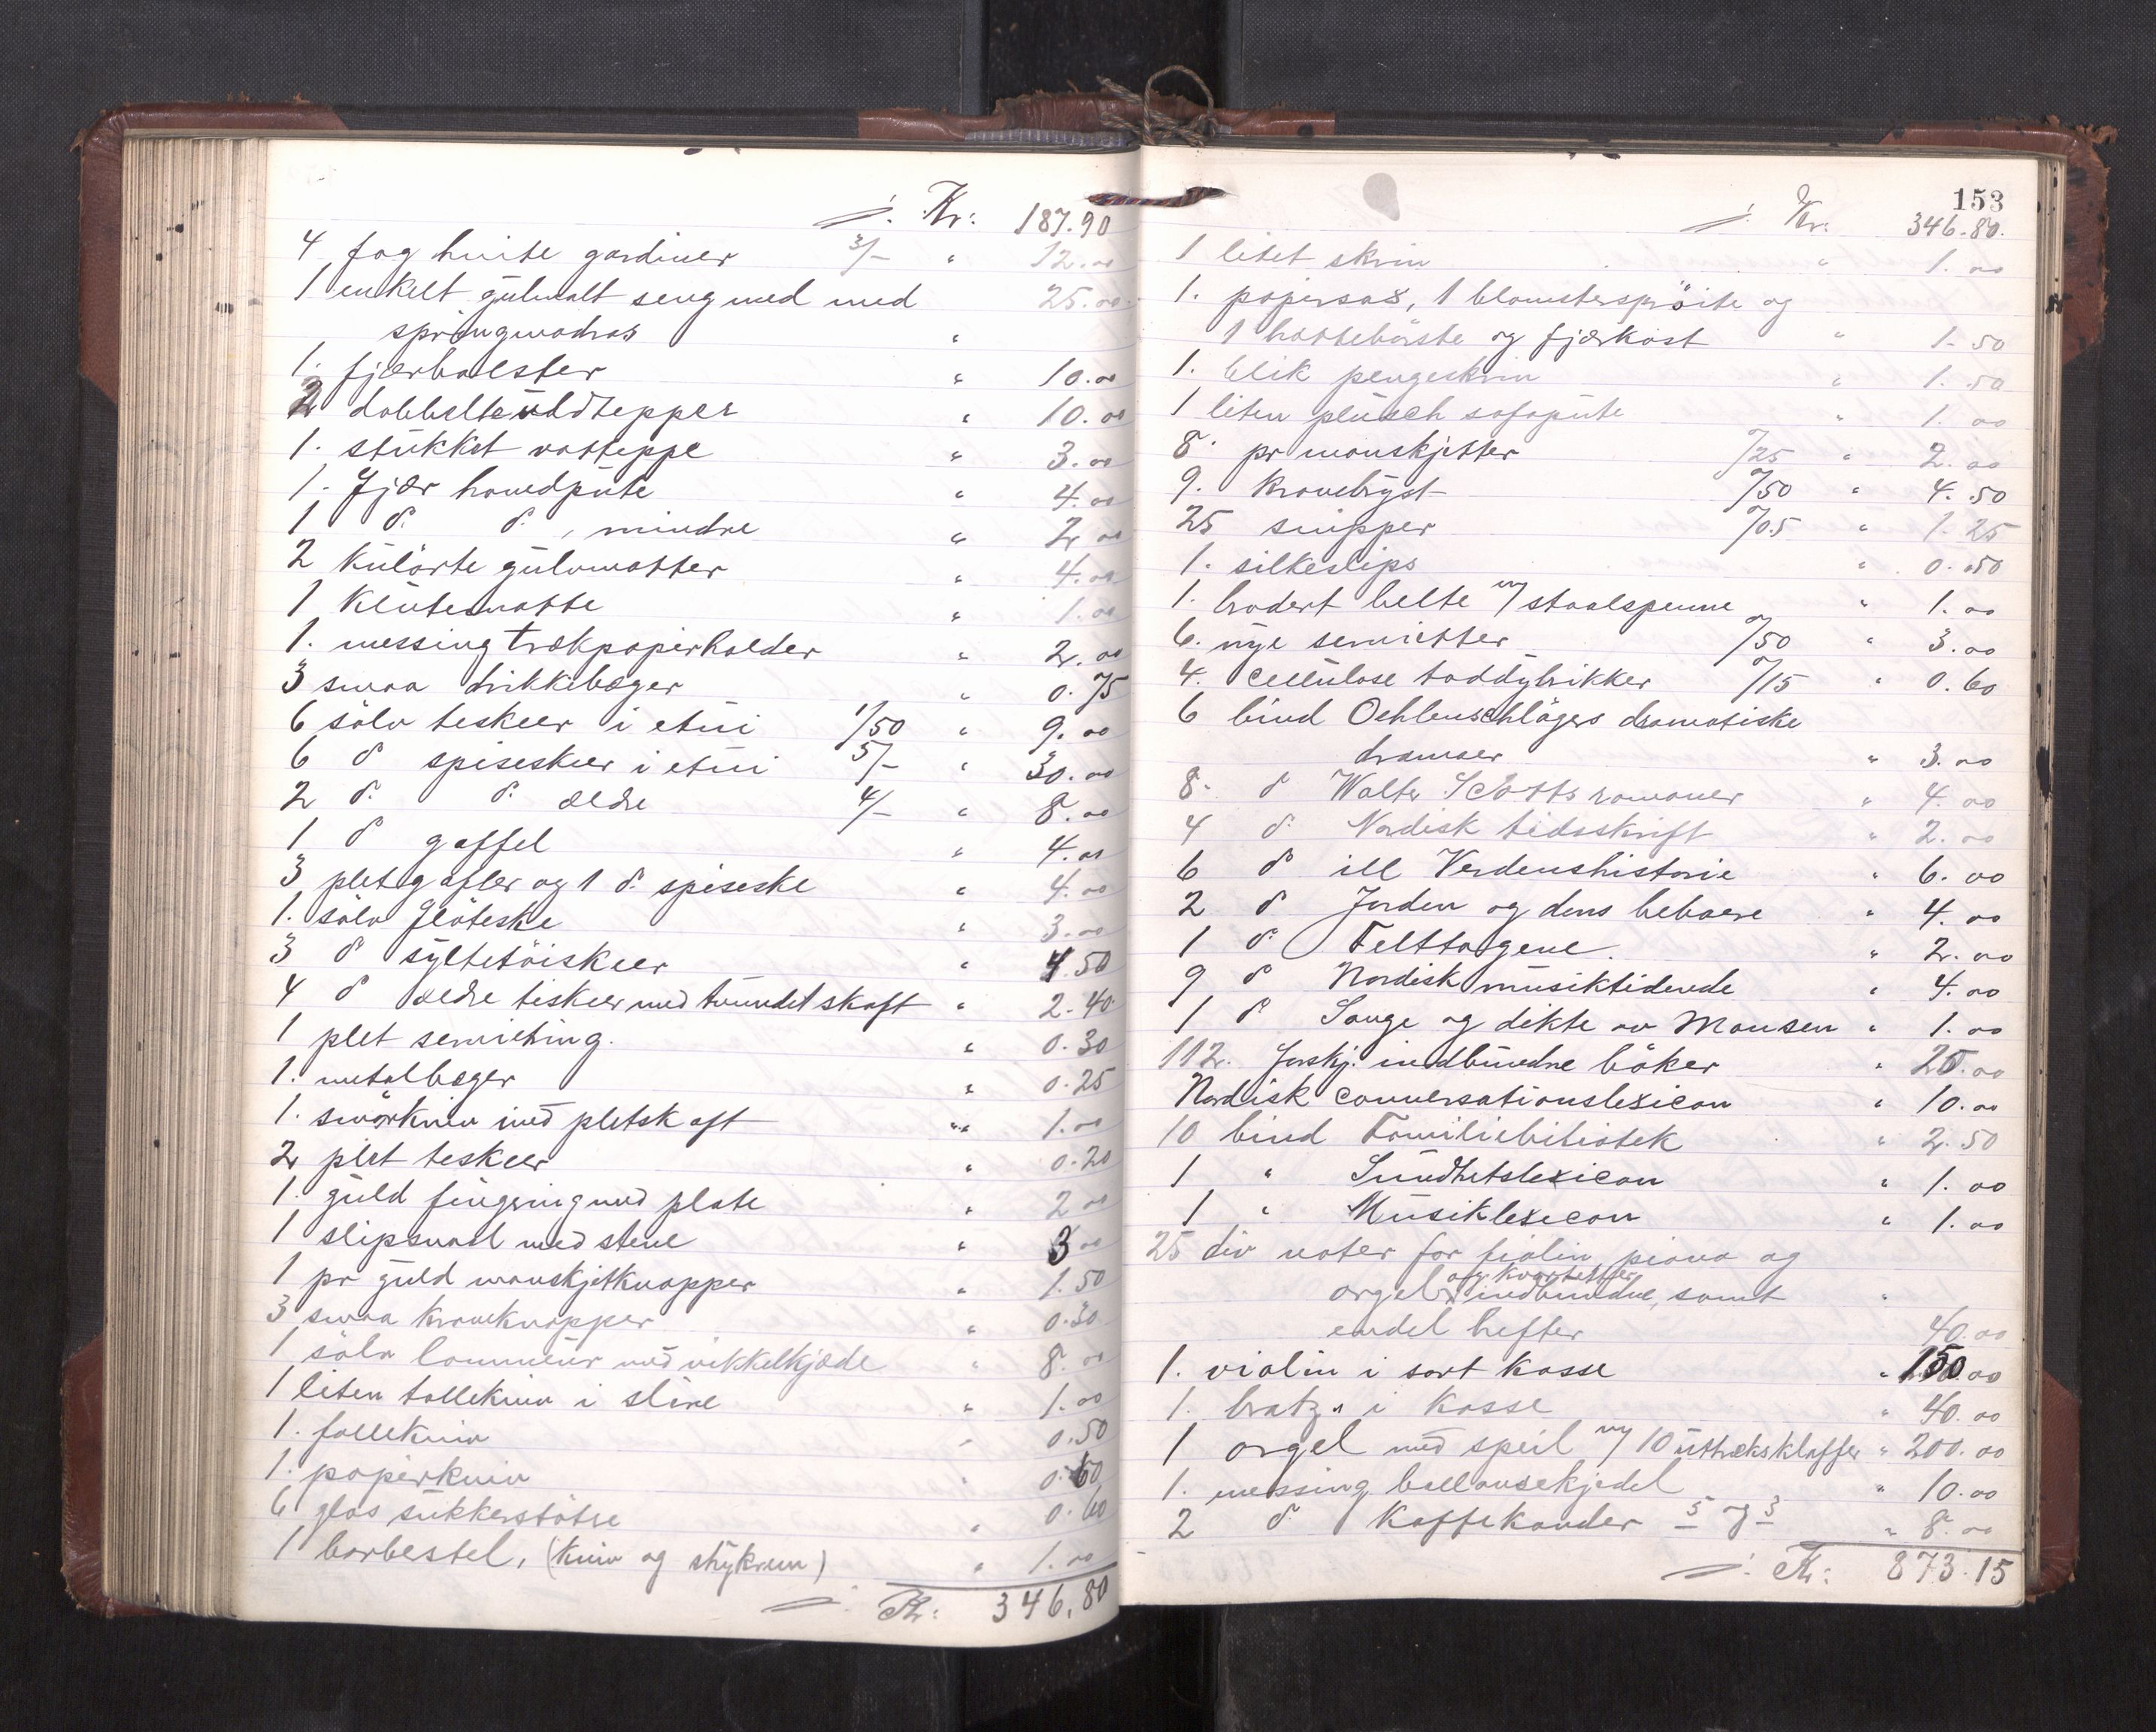 Kr: 187.90
4 fag hvite gardiner 3/- " 12.00
1 enkelt gulmalt seng med med 25.00
springmadras "
1. fjærbolster " 10.00
2 dobbelte uldtepper " 10.00
1. stukket vatteppe " 3.00
1. Fjær hovedpute " 4.00
1 do. do., mindre " 2.00
2 Kulörte gulvmatter " 4.00
1 Klutematte " 1.00
1. messing trækpapirholder " 2.00
3 smaa drikkebæger " 0.75
6 sölv teskeer i etui 1/50 " 9.00
6 do spiseskeer i etui 5/- " 30.00
2 do. do. ældre 4/- " 8.00
1 do gaffel " 4.00
3 pletgafler og 1 do. spiseske " 4.00
1. sölv flöteske " 3.00
3 do syltetöiskeer " 4.50
4 do ældre teskeer med tvundet skaft " 2.40
1 plet servietring. " 0.30
1. metalbæger " 0.25
1. smörkniv med pletskaft " 1.00
2 plet teskeer " 0.20
1. guld fingerring med plate " 2.00
1 slipsnaal med stene " 3.00
1 pr guld manskjetknapper " 1.50
3 smaa kraveknapper " 0.30
1 sölv lommeur med nikkelkjæde " 8.00
1 liten tollekniv i slire " 1.00
1. follekniv " 0.50
1. papirkniv " 0.60
6 glas sukkerstötre " 0.60
1 barbestel, (Kniv og strykrem) " 1.00
Kr: 346,80
153
Kr: 346.80.
1 litet skrin " 1.00
1. papirsax, 1 blomsterspröite og
1 hattebörste og fjærkost " 1.50
1. blik pengeskrin " 1.50
1 liten plüsch sofapute " 1.00
8. pr manskjetter "/25 " 2.00
9. Kravebryst "/50 " 4.50
25 snipper "/05 " 1.25
1. silkeslips " 0.50
1. brodert belte m/ staalspenne " 1.00
6. nye servietter "/50 " 3.00
4. cellulose toddybrikker "/15 " 0.60
6 bind Oehlenschlägers dramatiske
dramaer " 3.00
8. do Walter Scotts romaner " 4.00
4 do. Nordisk tidsskrift " 2.00
6 do ill Verdenshistorie " 6.00
2 do Jorden og dens beboere " 4.00
1 do. Felttogene. " 2.00
9 do Nordisk musiktidende " 4.00
1 do Sange og dikte av Monsen " 1.00
112. forskj. indbundne böker " 25.00
Nordisk conversationslexicon " 10.00
10 bind Familiebibliotek " 2.50
1 " Sundhetslexicon " 1.00
1 " Musiklexicon " 1.00
25 div noter for fiolin piano og
og kvartetter
orgel, indbundne, samt "
endel hefter 40.00
1. violin i sort Kasse " 150.00
1. bratz " i Kasse " 40.00
1 orgel med speil m/ 10 uttræksklaffer " 200.00
1. messing ballansekjedel " 10.00
2 do. Kaffekander 5 og 3 " 8.00
Kr: 873.15